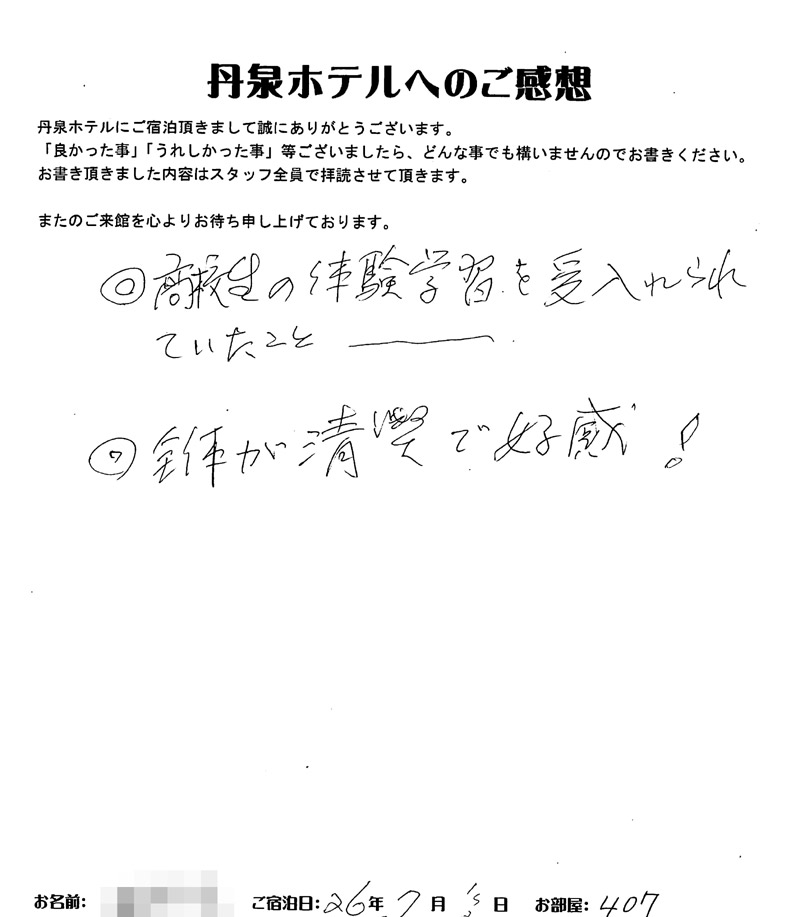 丹泉ホテルへのご感想
丹泉ホテルにご宿泊頂きまして誠にありがとうございます。
「良かった事」「うれしかった事」等ございましたら、どんな事でも構いませんのでお書きください。
お書き頂きました内容はスタッフ全員で拝読させて頂きます。
またのご来館を心よりお待ち申し上げております。
◎高校生の体験学習を受入れられ
ていたこと ———.
全体が清潔で好感!
お名前: ご宿泊日:26年 7月 日 お部屋: 407